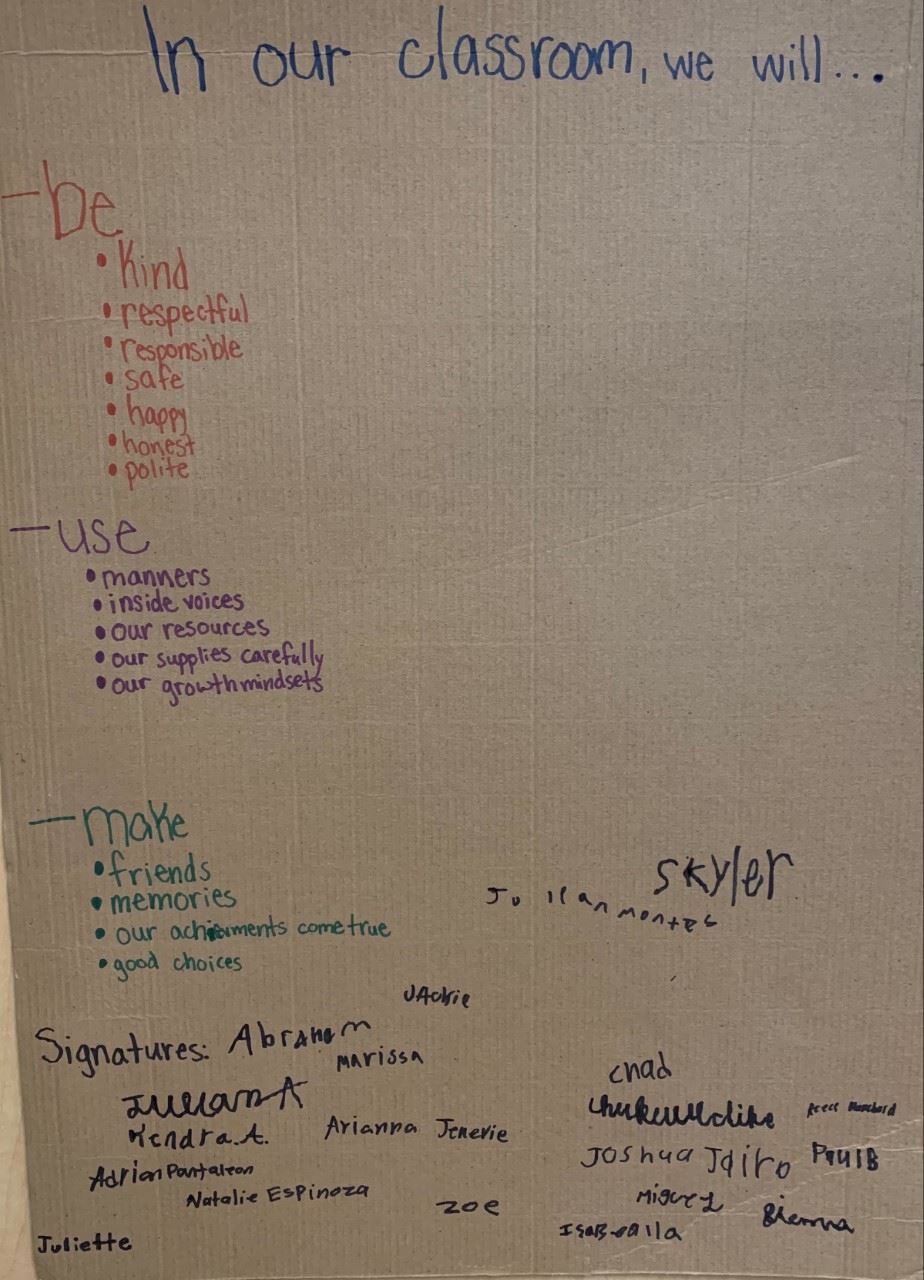 In our classroom, we will...
- be
• Kind
• respectful
• responsible
• safe
• happy
• honest
• polite
- use
• manners
• inside voices
• our resources
• our supplies carefully
• our growth mindsets
- make
• friends
• memories
• our come true
• good choices
Skyler
Julian montes
Signatures: Abraham
marissa
chad
Julian A
Kendra. A.
Arianna Jenevie
Joshua Jairo Paul B
Adrian Pantaleon
Natalie Espinoza
zoe
Miguel
Sienna
Juliette